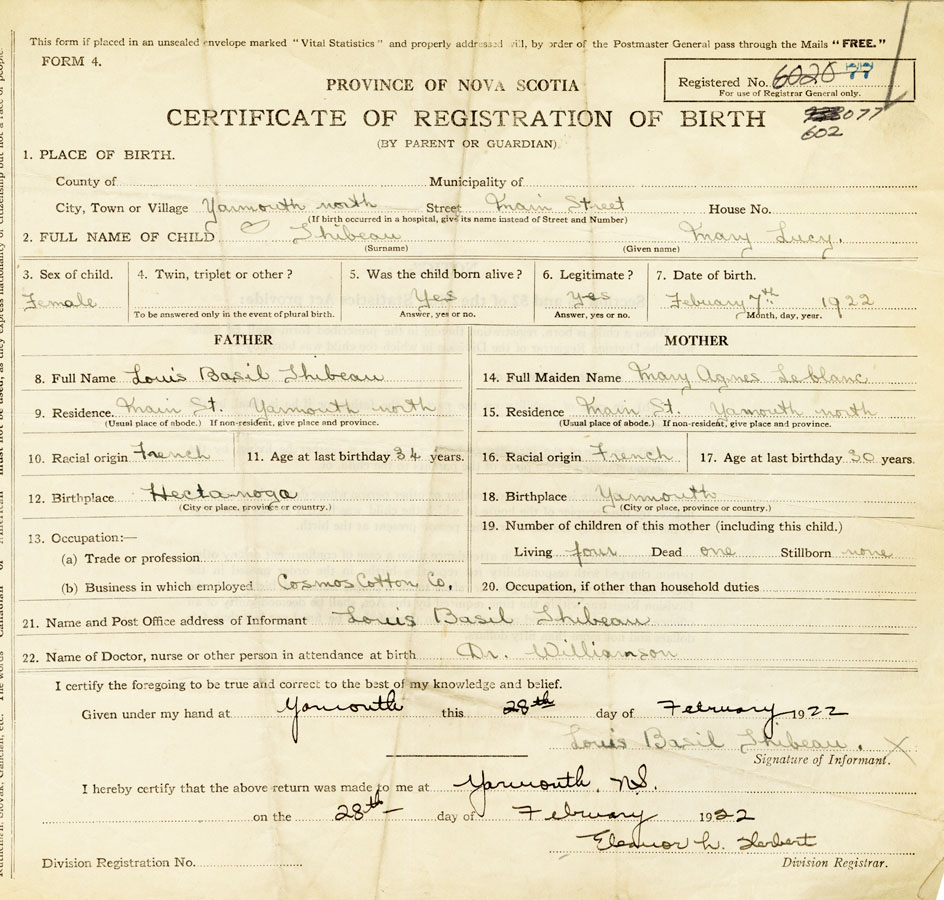 This form if placed in an unsealed envelope marked "Vital Statistics" and properly addressed will, by order of the Postmaster General pass through the Mails "FREE."
FORM 4.
Registered No. 6020 77
For use of Registrar General only.
PROVINCE OF NOVA SCOTIA
CERTIFICATE OF REGISTRATION OF BIRTH
077
602
(BY PARENT OR GUARDIAN)
1. PLACE OF BIRTH.
County of Municipality of
City, Town or Village Yarmouth north Street Main Street House No.
(If birth occurred in a hospital, give its name instead of Street and Number)
2. FULL NAME OF CHILD Thibeau Mary Lucy.
(Surname) (Given name)
3. Sex of child. 4. Twin, triplet or other? 5. Was the child born alive? 6. Legitimate? 7. Date of birth.
Female Yes yes February 7th 1922
To be answered only in the event of plural birth. Answer, yes or no. Answer, yes or no. Month, day, year.
FATHER MOTHER
8. Full Name Louis Basil Thibeau 14. Full Maiden Name Mary Agnes Leblanc
9. Residence. Main St. Yarmouth north 15. Residence Main St. Yamouth north
(Usual place of abode.) If non-resident, give place and province. (Usual place of abode.) If non-resident, give place and province.
10. Racial origin French 11. Age at last birthday 34 years. 16. Racial origin French 17. Age at last birthday 30 years.
12. Birthplace Hectanooga 18. Birthplace Yarmouth
(City or place, province or country.) (City or place, province or country.)
19. Number of children of this mother (including this child.)
13. Occupation:—
Living four Dead one Stillborn none
(a) Trade or profession
(b) Business in which employed Cosmos Cotton Co. 20. Occupation, if other than household duties
21. Name and Post Office address of Informant Louis Basil Thibeau
22. Name of Doctor, nurse or other person in attendance at birth Dr. Williamson
I certify the foregoing to be true and correct to the best of my knowledge and belief.
Given under my hand at Yarmouth this 28th day of February 1922
Louis Basil Thibeau. X
Signature of Informant.
I hereby certify that the above return was made to me at Yarmouth, N.S.
on the 28th day of February 1922
Eleanor L. Herbert
Division Registration No. Division Registrar.